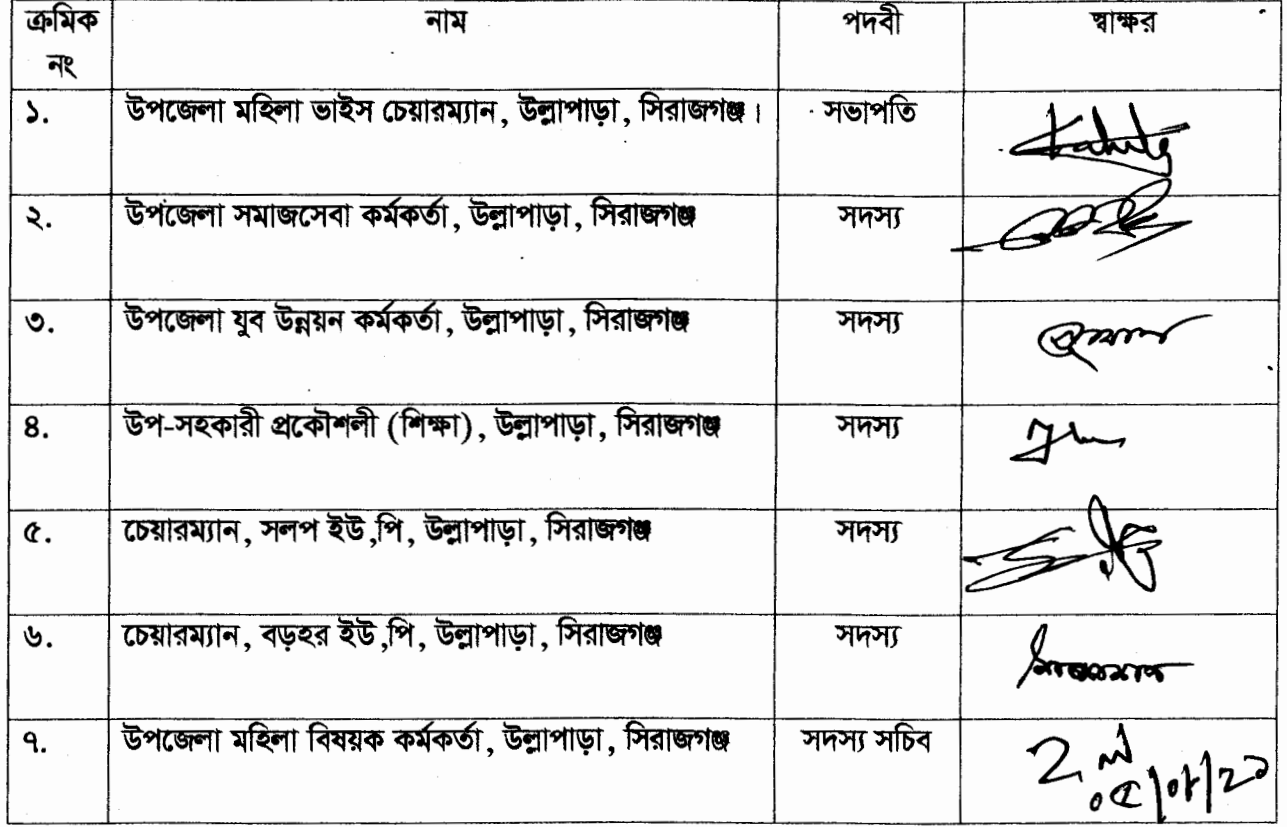 ক্রমিক নং নাম পদবী স্বাক্ষর
১. উপজেলা মহিলা ভাইস চেয়ারম্যান, উল্লাপাড়া, সিরাজগঞ্জ। সভাপতি
২. উপজেলা সমাজসেবা কর্মকর্তা, উল্লাপাড়া, সিরাজগঞ্জ সদস্য
৩. উপজেলা যুব উন্নয়ন কর্মকর্তা, উল্লাপাড়া, সিরাজগঞ্জ সদস্য
৪. উপ-সহকারী প্রকৌশলী (শিক্ষা), উল্লাপাড়া, সিরাজগঞ্জ সদস্য
৫. চেয়ারম্যান, সলপ ইউ,পি, উল্লাপাড়া, সিরাজগঞ্জ সদস্য
৬. চেয়ারম্যান, বড়হর ইউ,পি, উল্লাপাড়া, সিরাজগঞ্জ সদস্য
৭. উপজেলা মহিলা বিষয়ক কর্মকর্তা, উল্লাপাড়া, সিরাজগঞ্জ সদস্য সচিব